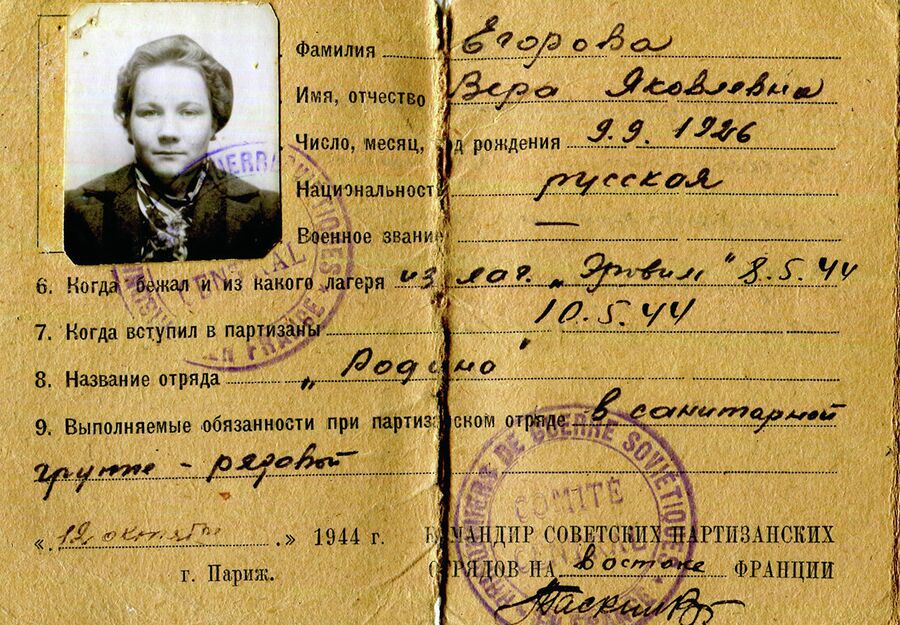 Фамилия Егорова
Имя, отчество Вера Яковлевна
Число, месяц, од рождения 9.9. 1926
Национальност русская
Военное звани —
6. Когда бежал и из какого лагеря из лаг. „Эрвиль" 8.5.44
7. Когда вступил в партизаны 10.5.44
8. Название отряда „Родина"
9. Выполняемые обязанности при партизанском отряде в санитарной
группе - рядовой
«12 октября» 1944 г.
КОМАНДИР СОВЕТСКИХ ПАРТИЗАНСКИХ
г. Париж.
ОТРЯДОВ НА востоке ФРАНЦИИ
COMITÉ CENTRAL
DE GUERRE SOVIETIQUES
EN FRANCE